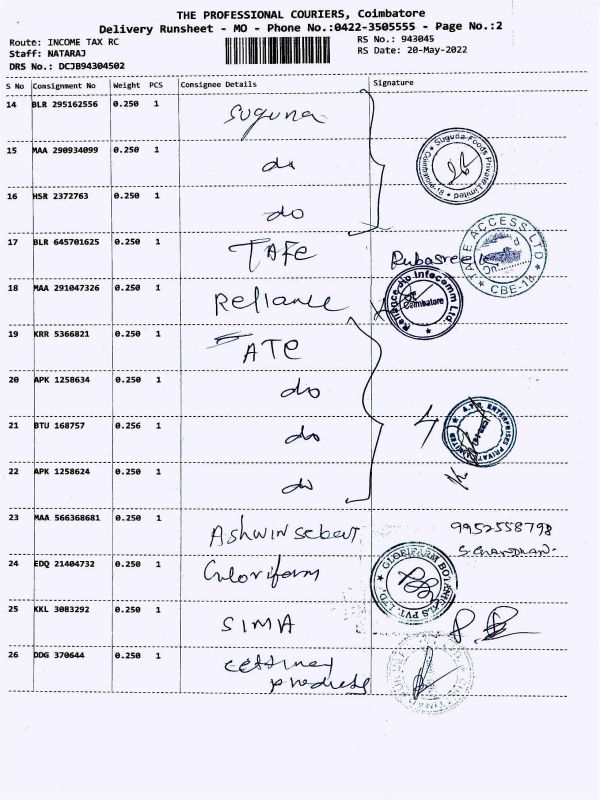 THE PROFESSIONAL COURIERS, Coimbatore
Delivery Runsheet - MO - Phone No.:0422-3505555 - Page No.:2
Route: INCOME TAX RC RS No.: 943045
Staff: NATARAJ RS Date: 20-May-2022
DRS No.: DCJB94304502
S No Consignment No Weight PCS Consignee Details Signature
14 BLR 295162556 0.250 1 Suguna
15 MAA 290934099 0.250 1 do
Suguna Foods Private Limited Coimbatore-18
16 HSR 2372763 0.250 1 do
17 BLR 645701625 0.250 1 TAFE Rubasree K
TAFE ACCESS LTD CBE-18
18 MAA 291047326 0.250 1 Reliance
Reliance Jio Infocomm Ltd. Coimbatore
19 KRR 5366821 0.250 1 ATE
20 APK 1258634 0.250 1 do
21 BTU 168757 0.256 1 do 4
ENTERPRISES PRIVATE LIMITED
22 APK 1258624 0.250 1 do
23 MAA 566368681 0.250 1 Ashwin 9952558798
S. CHANDRAN.
24 EDQ 21404732 0.250 1
PVT. LTD.
25 KKL 3083292 0.250 1 SIMA
26 DDG 370644 0.250 1